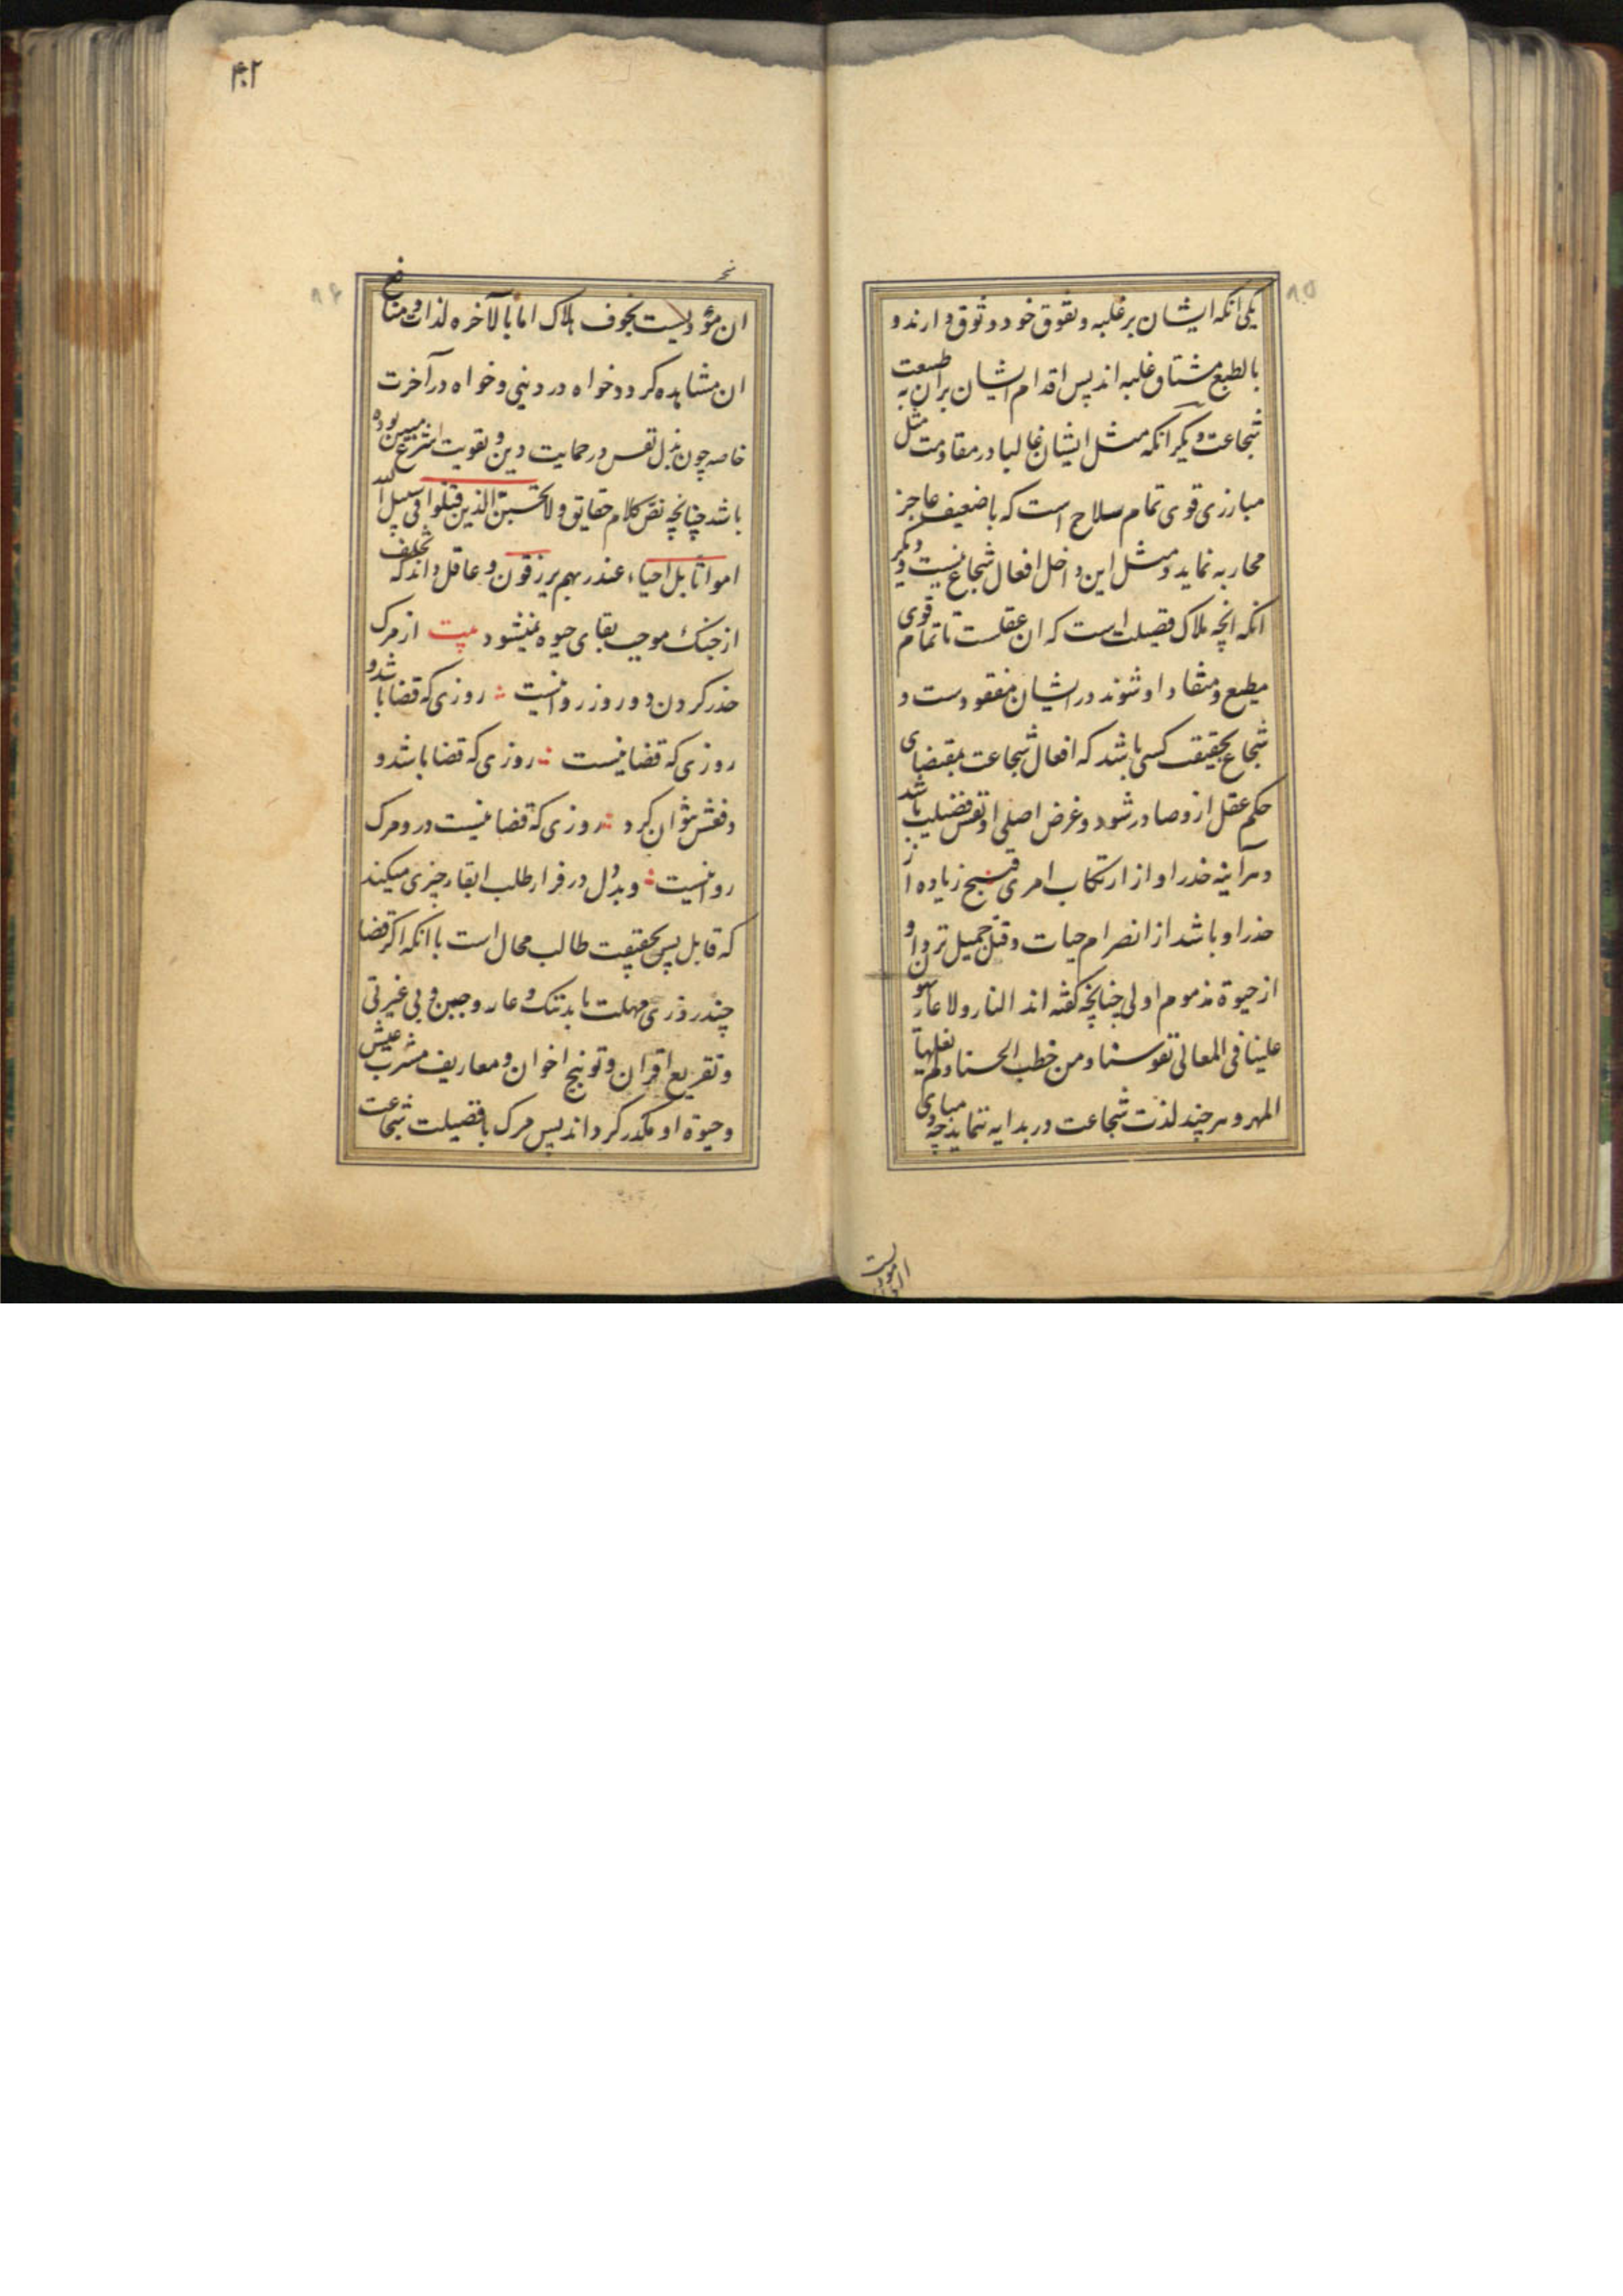 یکی انکه ایشان بر غلبه و تفوق خود وثوق دارند و
بالطبع مشتاق غلبه اند پس اقدام ایشان بران به طبیعت
شجاعت و دیگر انکه مثل ایشان غالبا در مقاومت مثل
مبارزی قوی تمام سلاح است که با ضعیف عاجز
محاربه نماید و مثل این داخل افعال شجاع نیست و دیگر
انکه انچه ملاک فضیلت است که ان عقلست تا تمام قوی
مطیع و منقاد او شوند در ایشان مفقودست و
شجاع بحقیقت کسی باشد که افعال شجاعت بمقتضای
حکم عقل ازو صادر شود و غرض اصلی او نفس فضیلت باشد
و هرآینه حذر او از ارتکاب امری قبیح زیاده از
حذر او باشد از انصرام حیات و قتل جمیل نزد او
از حیوة مذموم اولی چنانچه گفته اند النار ولا عار
علینا فی المعالی نفوسنا ومن خطب الحسنا ولم یغلها
المهر و هر چند لذت شجاعت در بدایه ننماید چه مبادی
۴۰۲
ان مؤدیست بخوف هلاک اما بالآخره لذات و منافع
ان مشاهده کردد خواه در دنیی و خواه در آخرت
خاصه چون بذل نفس در حمایت دین و تقویت شرع مبین بوده
باشد چنانچه نص کلام حقایق ولا تحسبن الذین قتلوا فی سبیل الله
امواتا بل احیاء عند ربهم یرزقون و عاقل داند که تخلف
از جنک موجب بقای حیوه نمیشود بیت از مرک
حذر کردن دو روز روا نیست روزی که قضا باشد و
روزی که قضا نیست روزی که قضا باشد و
دفعش نتوان کرد روزی که قضا نیست درو مرک
روا نیست و بددل در فرار طلب ابقاء چیزی میکند
که قابل پس بحقیقت طالب محال است با انکه اکر قضا
چند روزی مهلت یابد ننک و عار و جبن و بی غیرتی
و تقریع اقران و توبیخ اخوان و معاریف مشرب عیش
و حیوة او مکدر کرداند پس مرک با فضیلت شجاعت